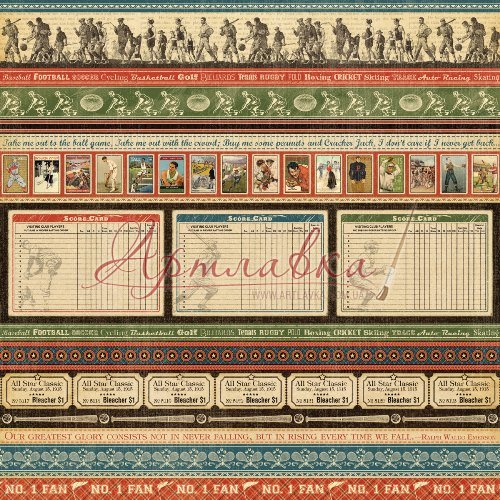 Baseball FOOTBALL SOCCER Cycling Basketball Golf BILLIARDS TENNIS RUGBY POLO Boxing CRICKET Skiing TRACK Auto Racing Skating
Take me out to the ball game, Take me out with the crowd; Buy me some peanuts and Cracker Jack, I don't care if I never get back.
SCORE CARD SCORE CARD SCORE CARD
VISITING CLUB PLAYERS VISITING CLUB PLAYERS VISITING CLUB PLAYERS
Артлавка
WWW.ARTLAVKA.COM.UA
Baseball FOOTBALL SOCCER Cycling Basketball Golf BILLIARDS TENNIS RUGBY POLO Boxing CRICKET Skiing TRACK Auto Racing Skating
All Star Classic All Star Classic All Star Classic All Star Classic All Star Classic All Star Classic
Sunday, August 15, 1915 Sunday, August 15, 1915 Sunday, August 15, 1915 Sunday, August 15, 1915 Sunday, August 15, 1915 Sunday, August 15, 1915
Bleacher $1 Bleacher $1 Bleacher $1 Bleacher $1 Bleacher $1 Bleacher $1
OUR GREATEST GLORY CONSISTS NOT IN NEVER FALLING, BUT IN RISING EVERY TIME WE FALL.—RALPH WALDO EMERSON
NO. 1 FAN NO. 1 FAN NO. 1 FAN NO. 1 FAN NO. 1 FAN NO. 1 FAN